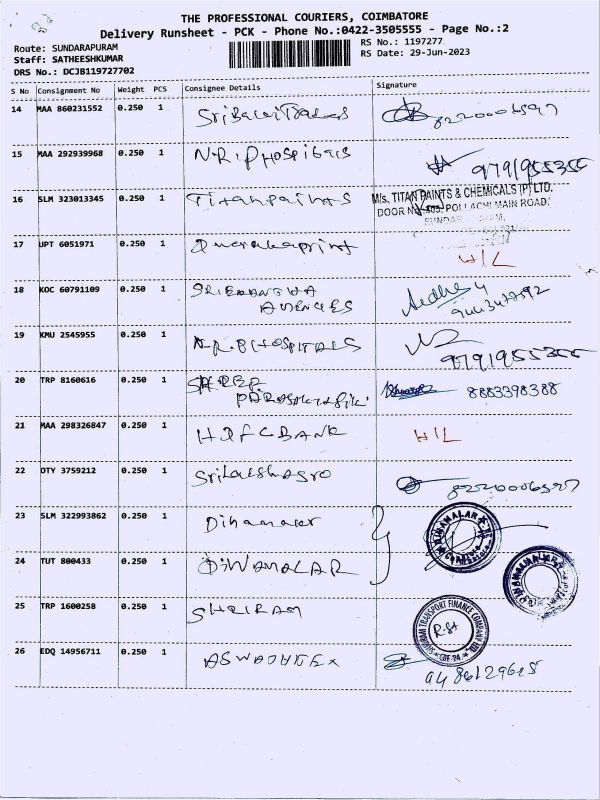 THE PROFESSIONAL COURIERS, COIMBATORE
Delivery Runsheet - PCK - Phone No.:0422-3505555 - Page No.:2
Route: SUNDARAPURAM
RS No.: 1197277
Staff: SATHEESHKUMAR
RS Date: 29-Jun-2023
DRS No.: DCJB119727702
S No Consignment No Weight PCS Consignee Details Signature
14 MAA 860231552 0.250 1 Sri Balaji Traders 8220006597
15 MAA 292939968 0.250 1 N.R.P Hospitals 9791955355
16 SLM 323013345 0.250 1 Titanpaints
M/s. TITAN PAINTS & CHEMICALS (P) LTD.
DOOR NO. 505, POLLACHI MAIN ROAD,
17 UPT 6051971 0.250 1 Dwarakaprint H/L
18 KOC 60791109 0.250 1
AGENCIES
19 KMU 2545955 0.250 1 N.R.P HOSPITALS
9791955355
20 TRP 8160616 0.250 1 8883398388
21 MAA 298326847 0.250 1 HDFC BANK H/L
22 OTY 3759212 0.250 1 Srilakshagro 8220006597
23 SLM 322993862 0.250 1 Dinamalar
DINAMALAR
24 TUT 800433 0.250 1 DINAMALAR
DINAMALAR
25 TRP 1600258 0.250 1 SHRIRAM
SHRIRAM TRANSPORT FINANCE COMPANY LTD.
CBE-24
26 EDQ 14956711 0.250 1
9486129615